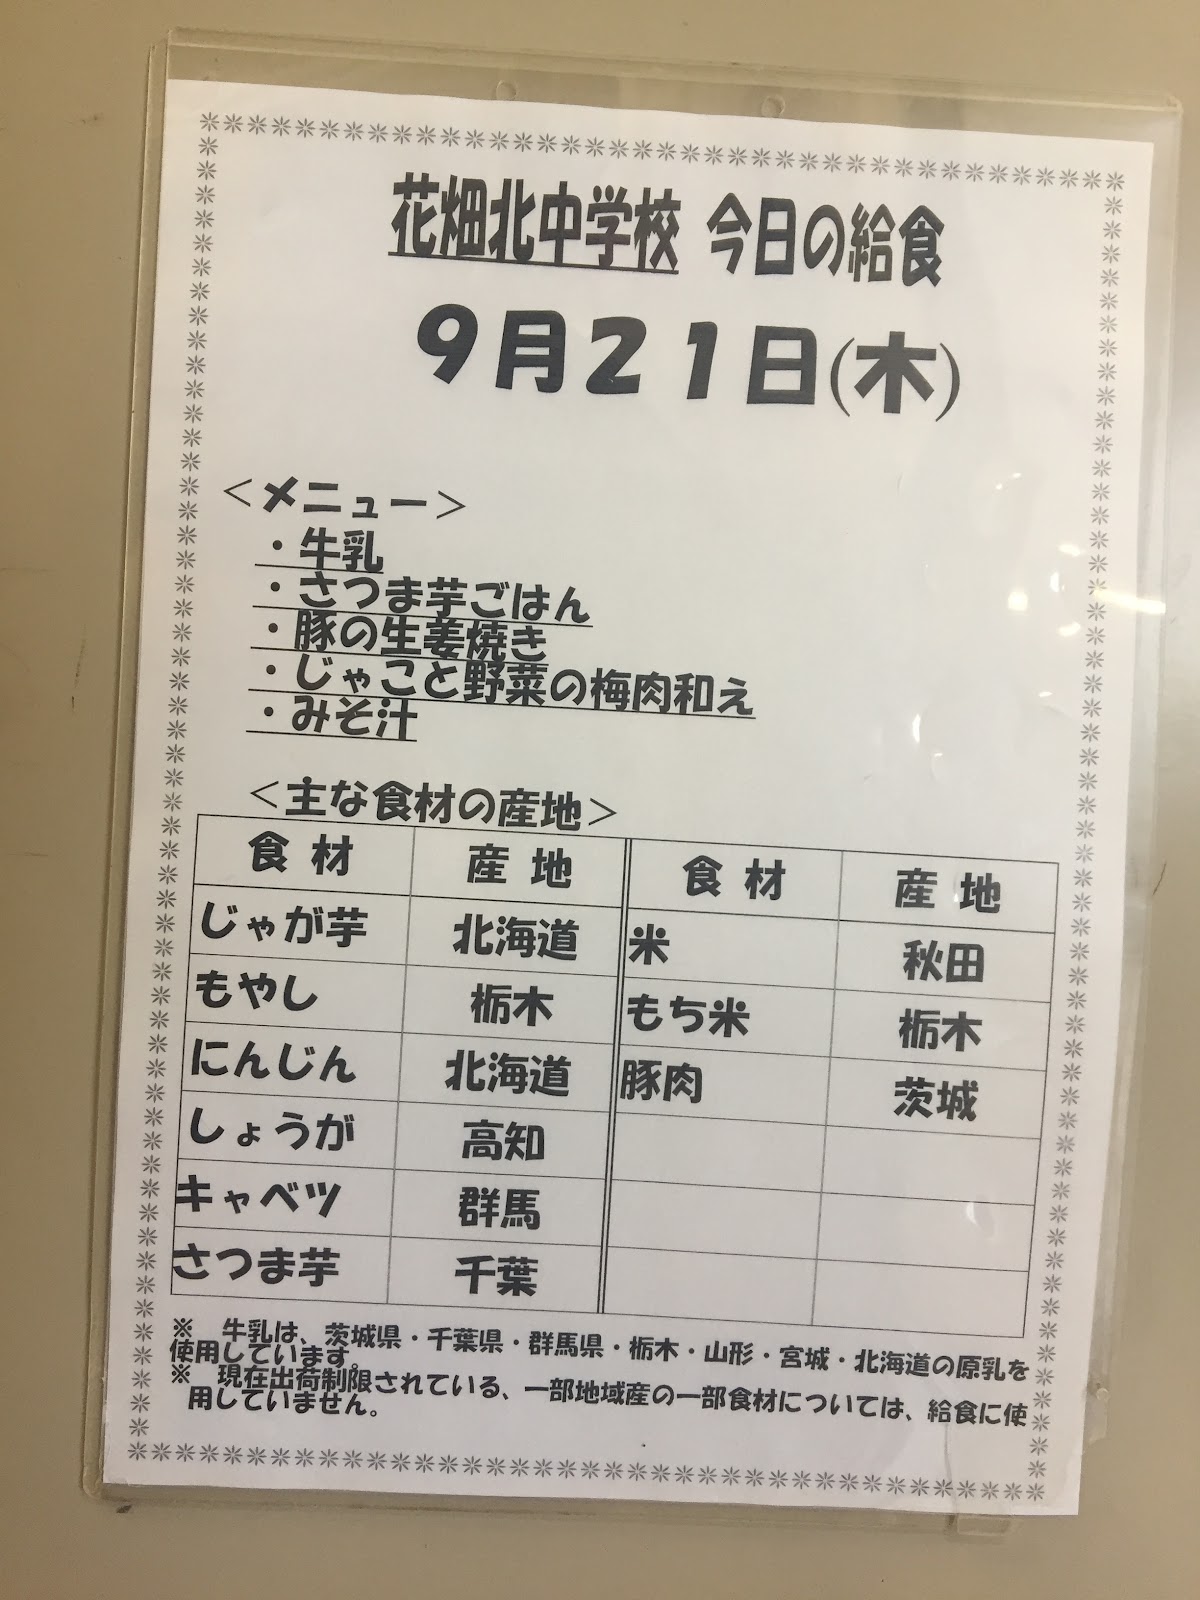 花畑北中学校 今日の給食
9月21日(木)
＜メニュー＞
・牛乳
・さつま芋ごはん
・豚の生姜焼き
・じゃこと野菜の梅肉和え
・みそ汁
＜主な食材の産地＞
食 材 産 地 食 材 産 地
じゃが芋 北海道 米 秋田
もやし 栃木 もち米 栃木
にんじん 北海道 豚肉 茨城
しょうが 高知
キャベツ 群馬
さつま芋 千葉
※ 牛乳は、茨城県・千葉県・群馬県・栃木・山形・宮城・北海道の原乳を
使用しています。
※ 現在出荷制限されている、一部地域産の一部食材については、給食に使
用していません。